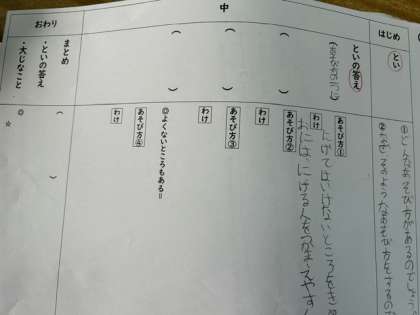 はじめ
中
おわり
とい
①どんなあそび方があるのでしょう
②なぜ、そのようなあそび方をするの
といの答え
(
)
あそび方①
にげてはいけないところをき
わけ
おには、にげる人をつかまえやす
(
)
あそび方②
わけ
(
)
あそび方③
わけ
◎よくないところもある‼
あそび方④
わけ
まとめ
・といの答え
・大じなこと
(
)
◎
☆